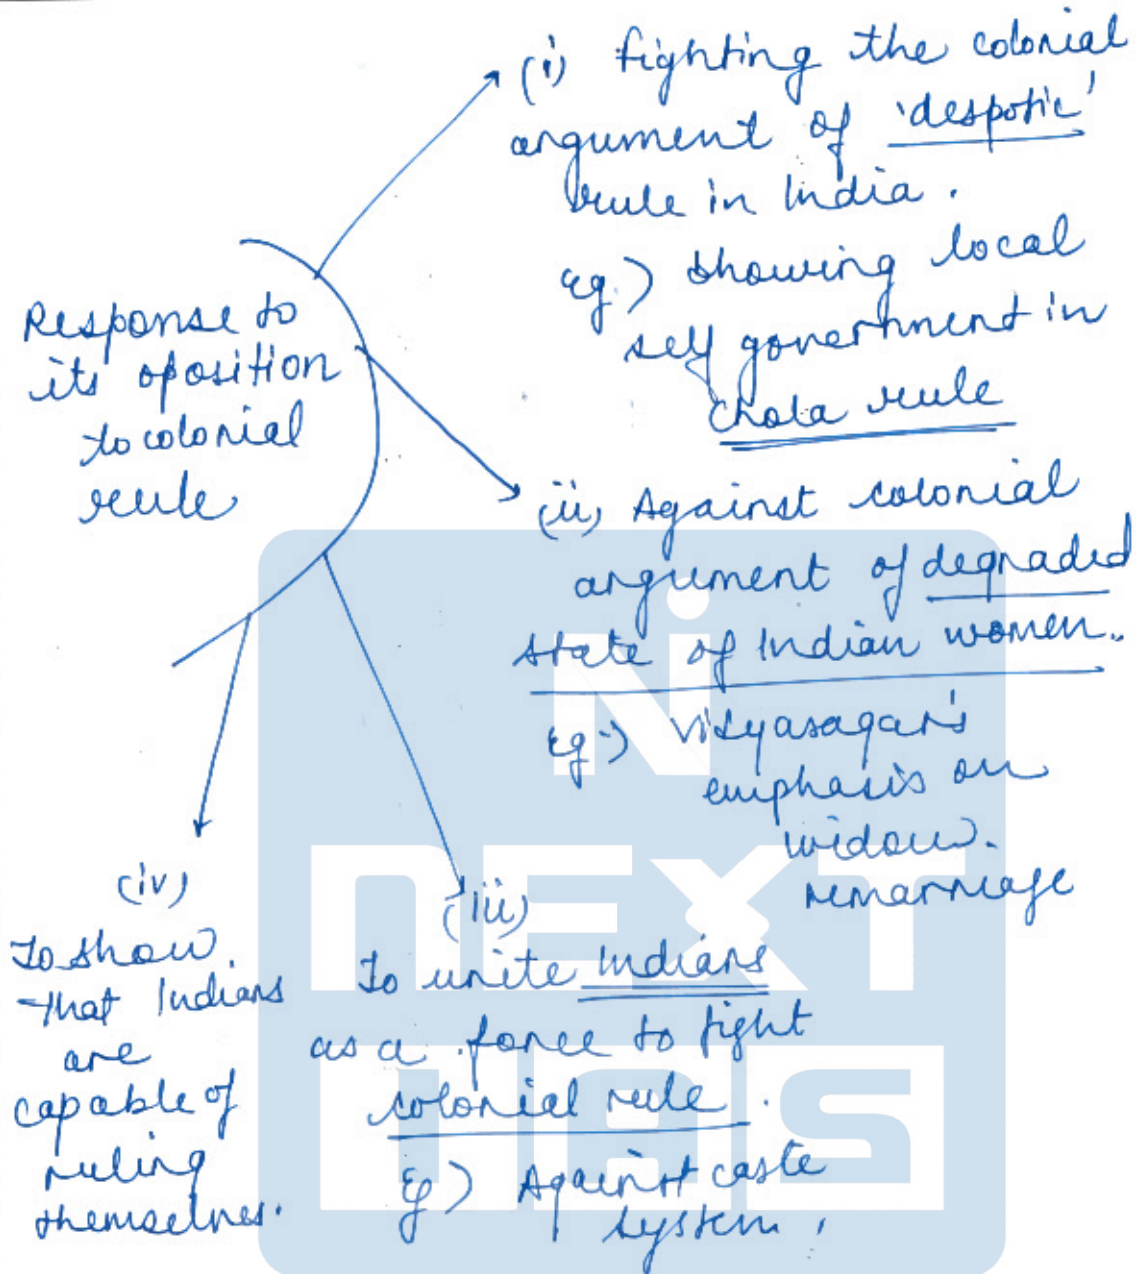 Response to
its oposition
to colonial
rule
(i) fighting the colonial
argument of 'despotic'
rule in India.
Eg.) showing local
self government in
Chola rule
(ii) Against colonial
argument of degraded
state of Indian women.
Eg.) Vidyasagar's
emphasis on
widow
remarriage
(iii)
To unite Indians
as a force to fight
colonial rule.
Eg) Against caste
system.
(iv)
To show
that Indians
are
capable of
ruling
themselves.
NEXT
IAS